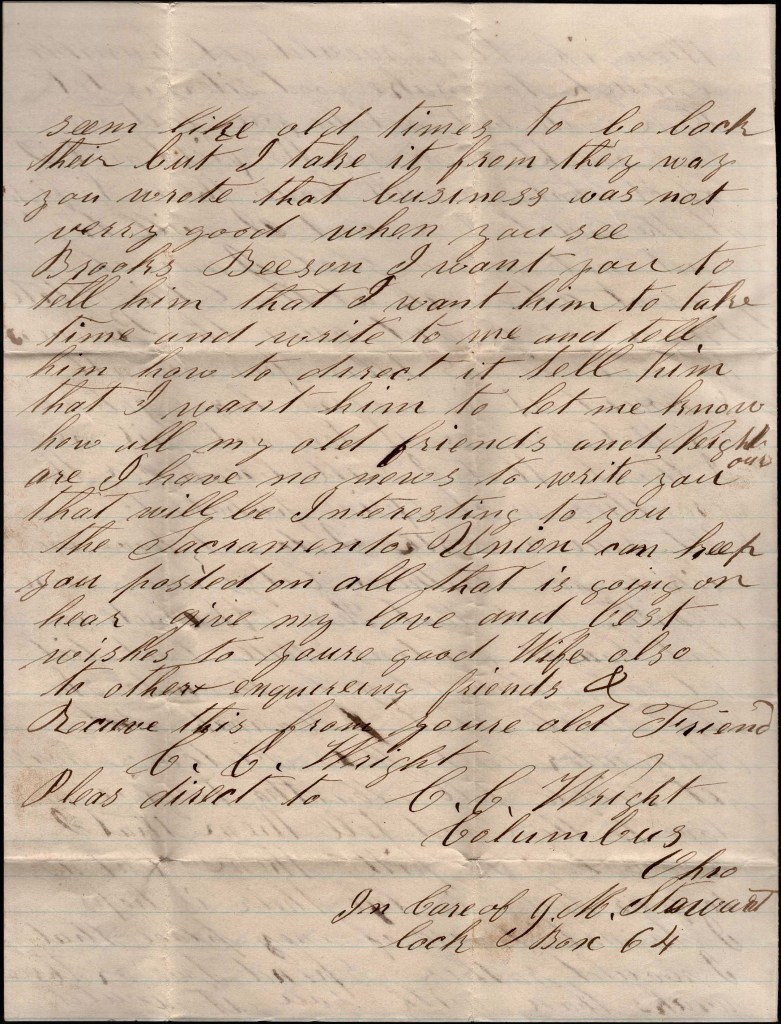 seem like old times to be back
their but I take it from they way
you wrote that business was not
verry good when you see
Brooks Beeson I want you to
tell him that I want him to take
time and write to me and tell
him how to direct it tell him
that I want him to let me know
how all my old friends and Neighbours
are I have no news to write you
that will be Interesting to you
the Sacramento Union can keep
you posted on all that is going on
hear give my love and best
wishes to youre good Wife also
to other enquireing friends &
Recieve this from youre old Friend
C. C. Wright
Pleas direct to C. C. Wright
Columbus
Ohio
In Care of J. M. Stewart
lock Box 64